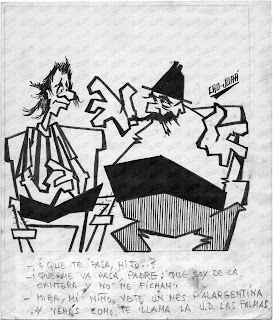 CHO-JUAÁ
- ¿QUE TE PASA, HIJO..?
- ¡QUEME VA PASA, PADRE; QUE SOY DE LA
CANTERA Y NO ME FICHAN!
- MIRA, MI NIÑO, VETE UN MES P'ALARGENTINA
Y VERÁS COMO TE LLAMA LA U.D. LAS PALMAS.